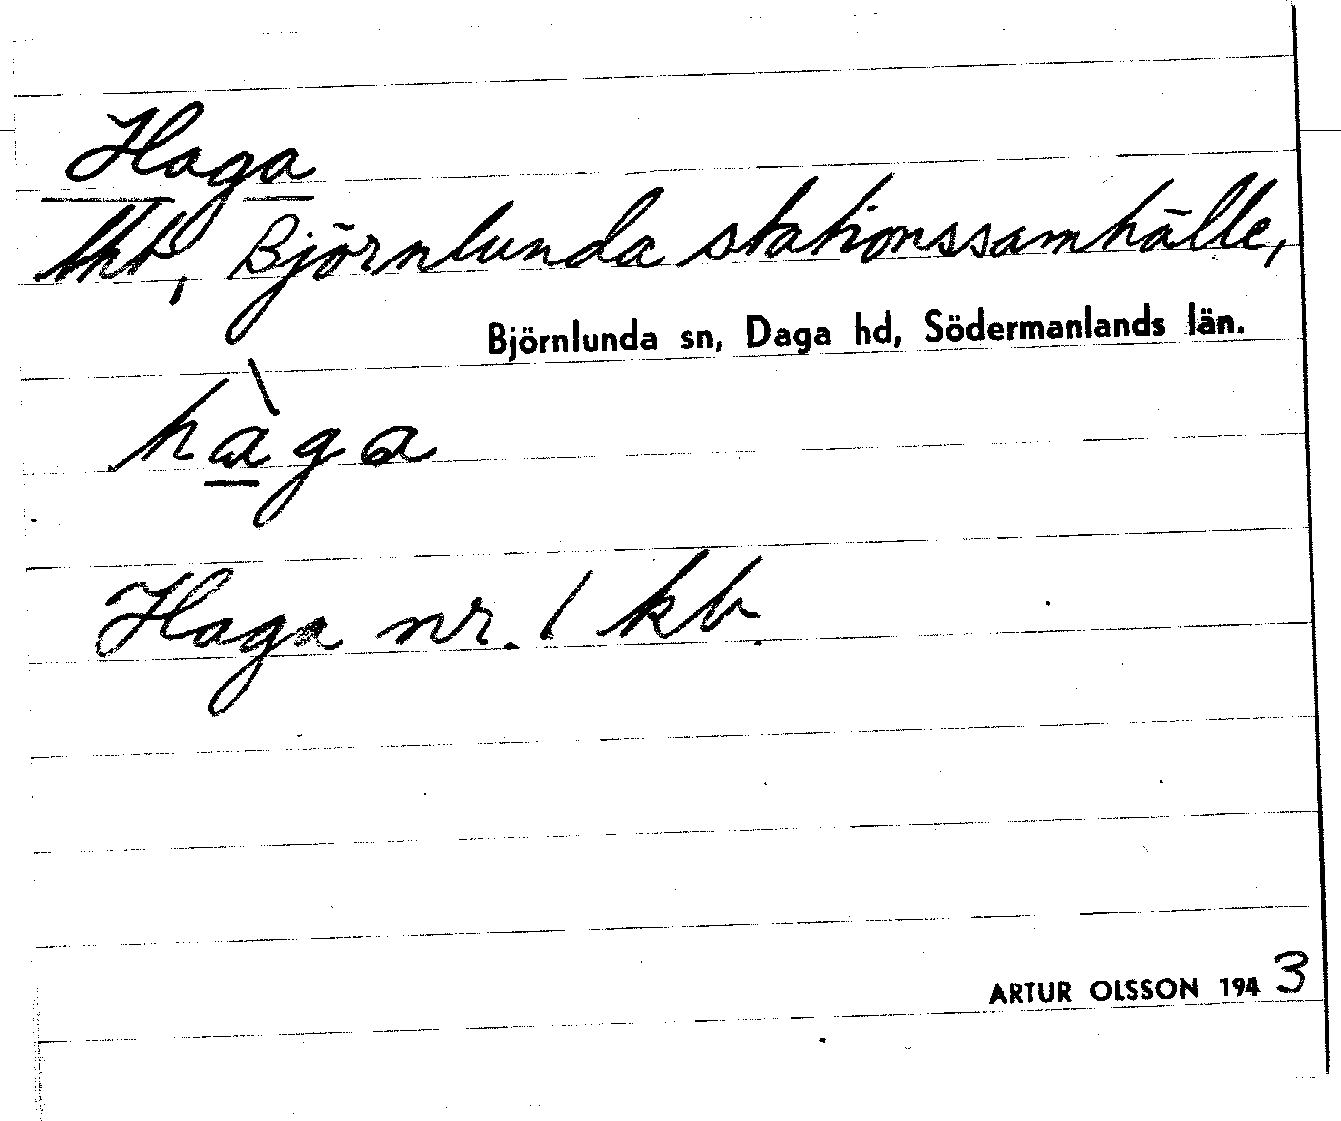 Haga
lht, Björnlunda stationssamhälle,
Björnlunda sn, Daga hd, Södermanlands län.
hàga
Haga nr. 1 kb.
ARTUR OLSSON 1943